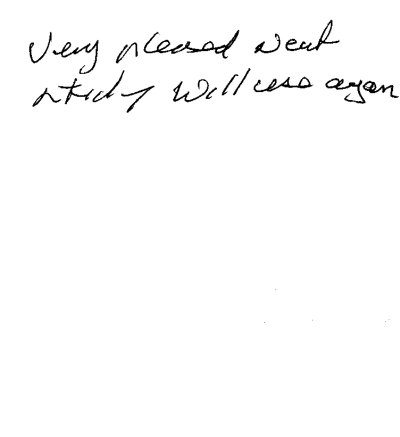 Very pleased Neat
& tidy Will use again